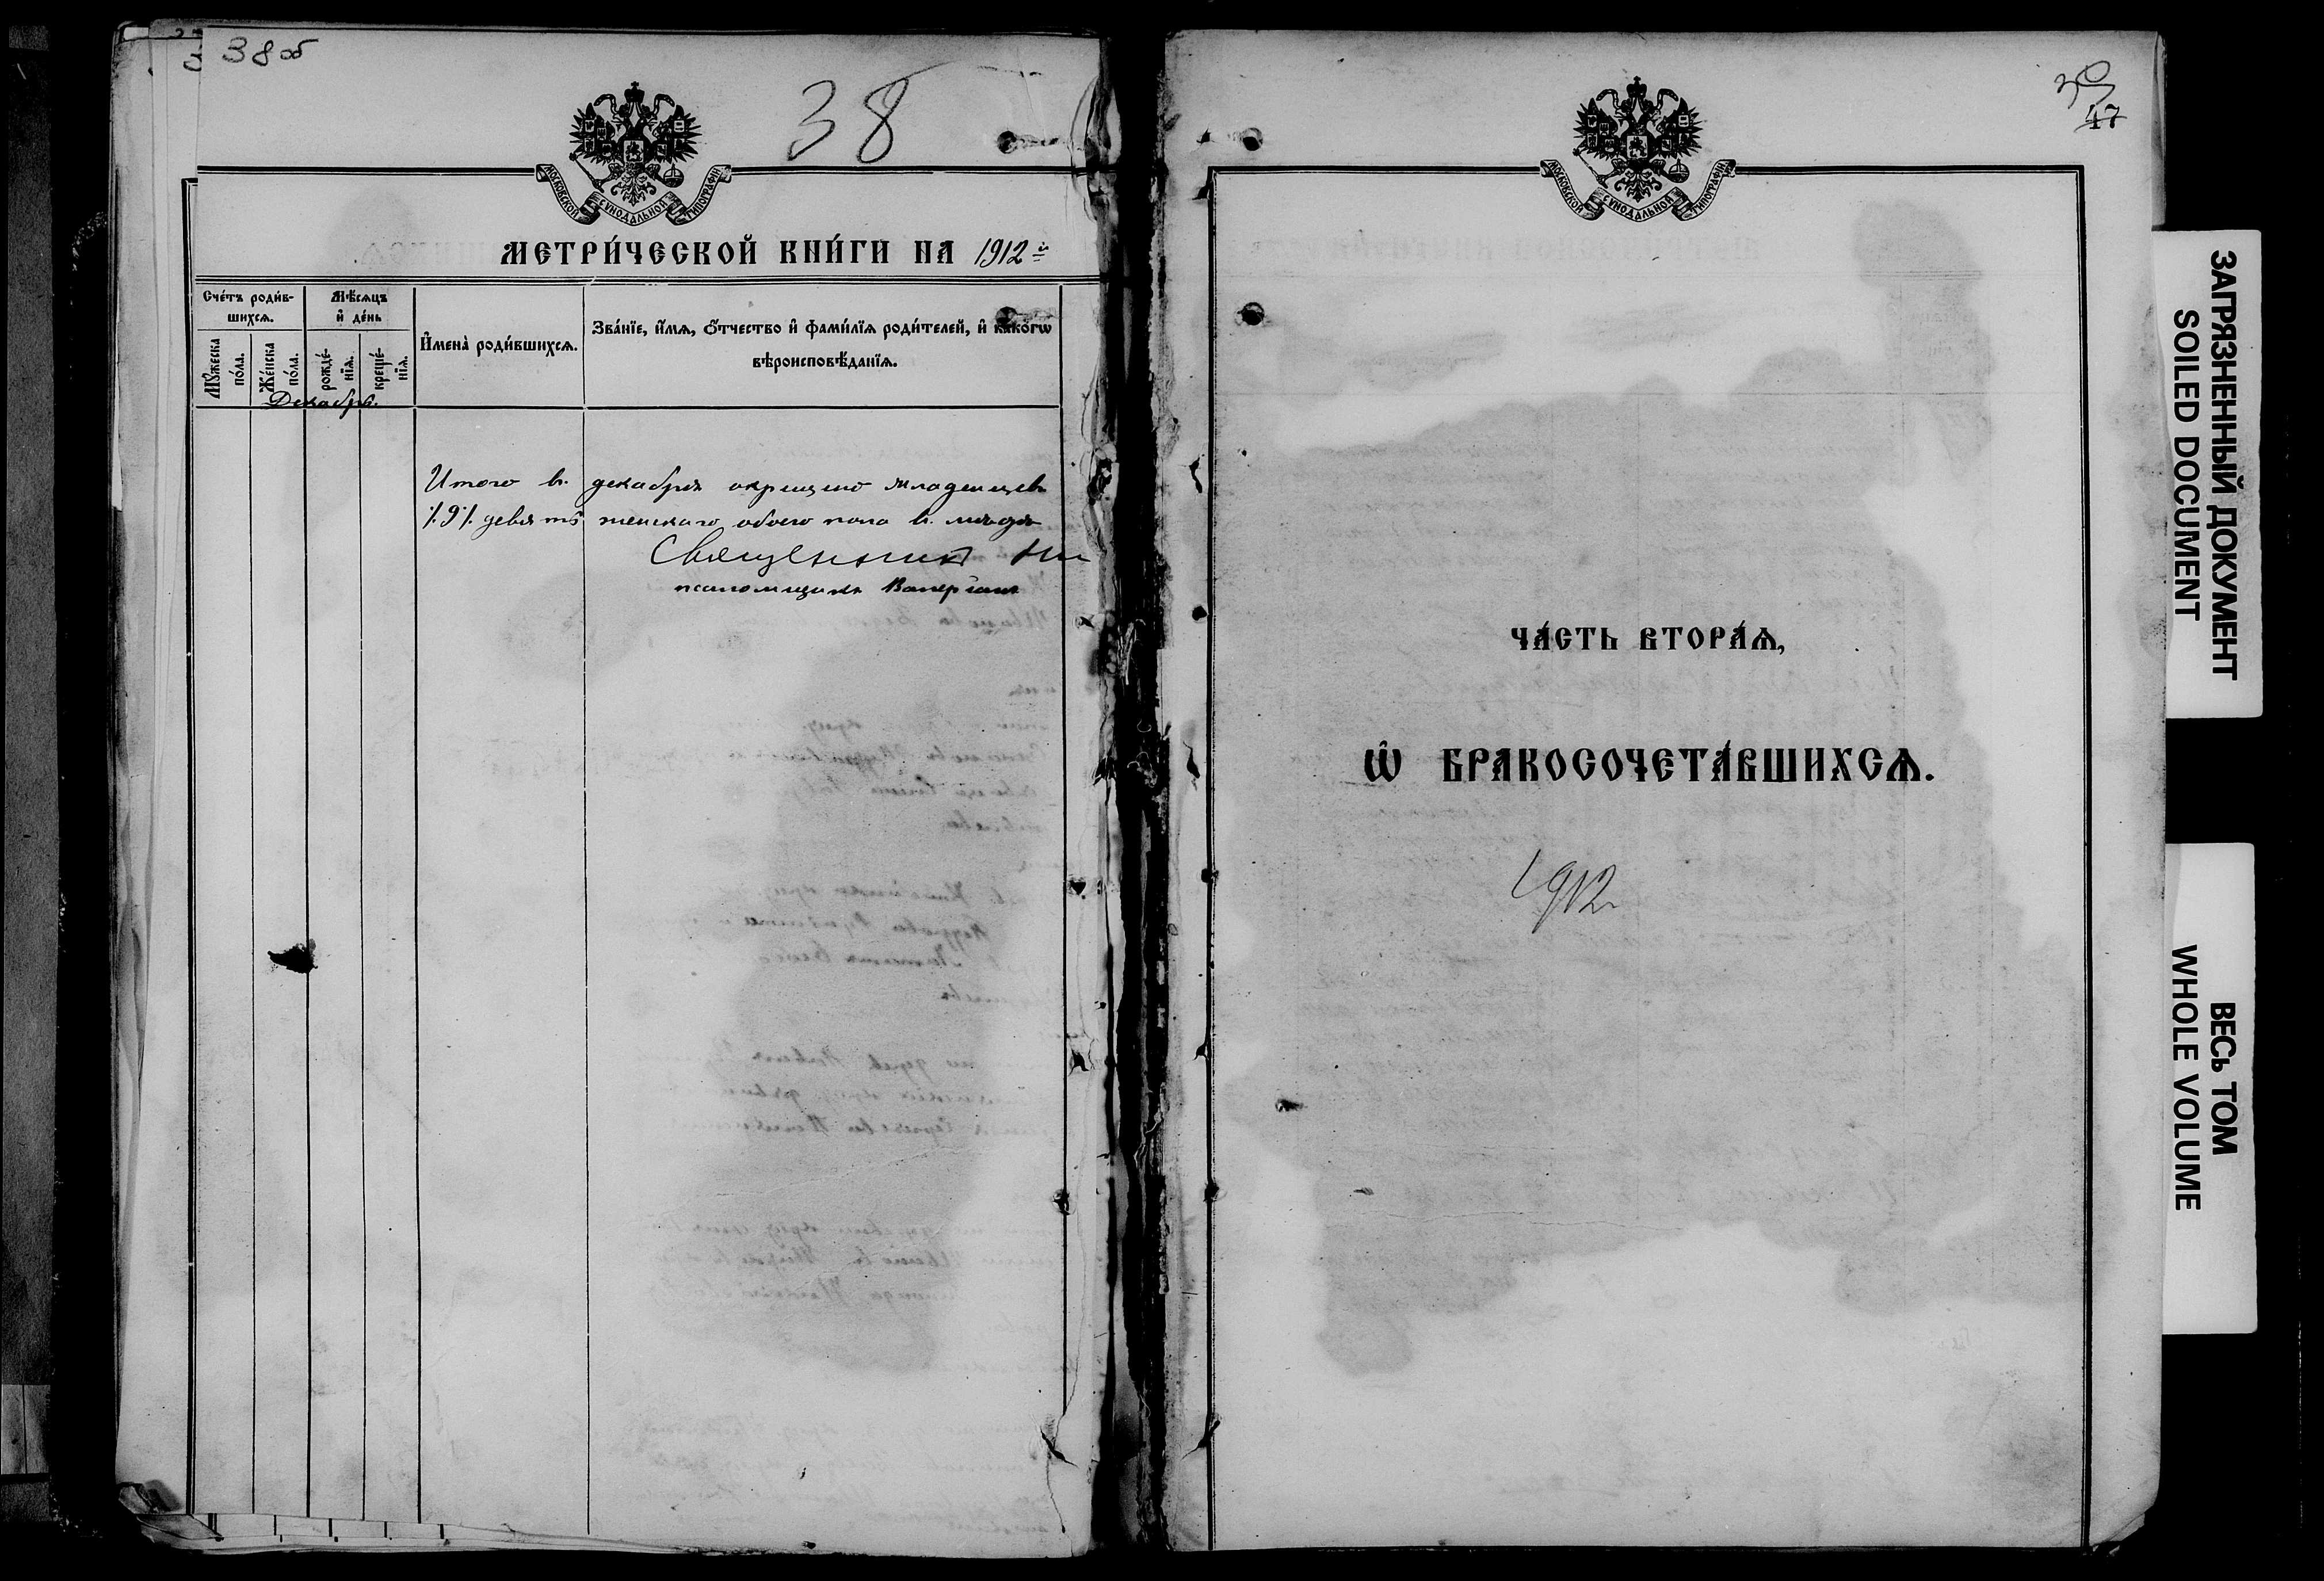 38 об
38
МОСКОВСКОЙ СѴНОДАЛЬНОЙ ТИПОГРАФІИ
МЕТРИ́ЧЕСКОЙ КНИ́ГИ НА 1912 й
Сче́тъ роди́в-
шихсѧ.
Мѣ́сѧцъ
и҆ де́нь
И҆мена̀ роди́вшихсѧ.
Зва́нїе, и҆́мѧ, ѻ҆́тчество и҆ фами́лїѧ роди́телей, и҆ како́гѡ
вѣроисповѣ́данїѧ.
Мꙋ́жеска
по́ла.
Же́нска
по́ла.
рожде́-
нїѧ.
креще́-
нїѧ.
Декабрь.
Итого въ декабрѣ окрещено младенцевъ
/.9./. девять женскаго обоего пола въ
Священникъ
псаломщикъ Валеріанъ
39
47
МОСКОВСКОЙ СѴНОДАЛЬНОЙ ТИПОГРАФІИ
ЧА́СТЬ ВТОРА́Ѧ,
Ѡ҆ БРАКОСОЧЕТА́ВШИХСѦ.
1912
ЗАГРЯЗНЕННЫЙ ДОКУМЕНТ
SOILED DOCUMENT
ВЕСЬ ТОМ
WHOLE VOLUME